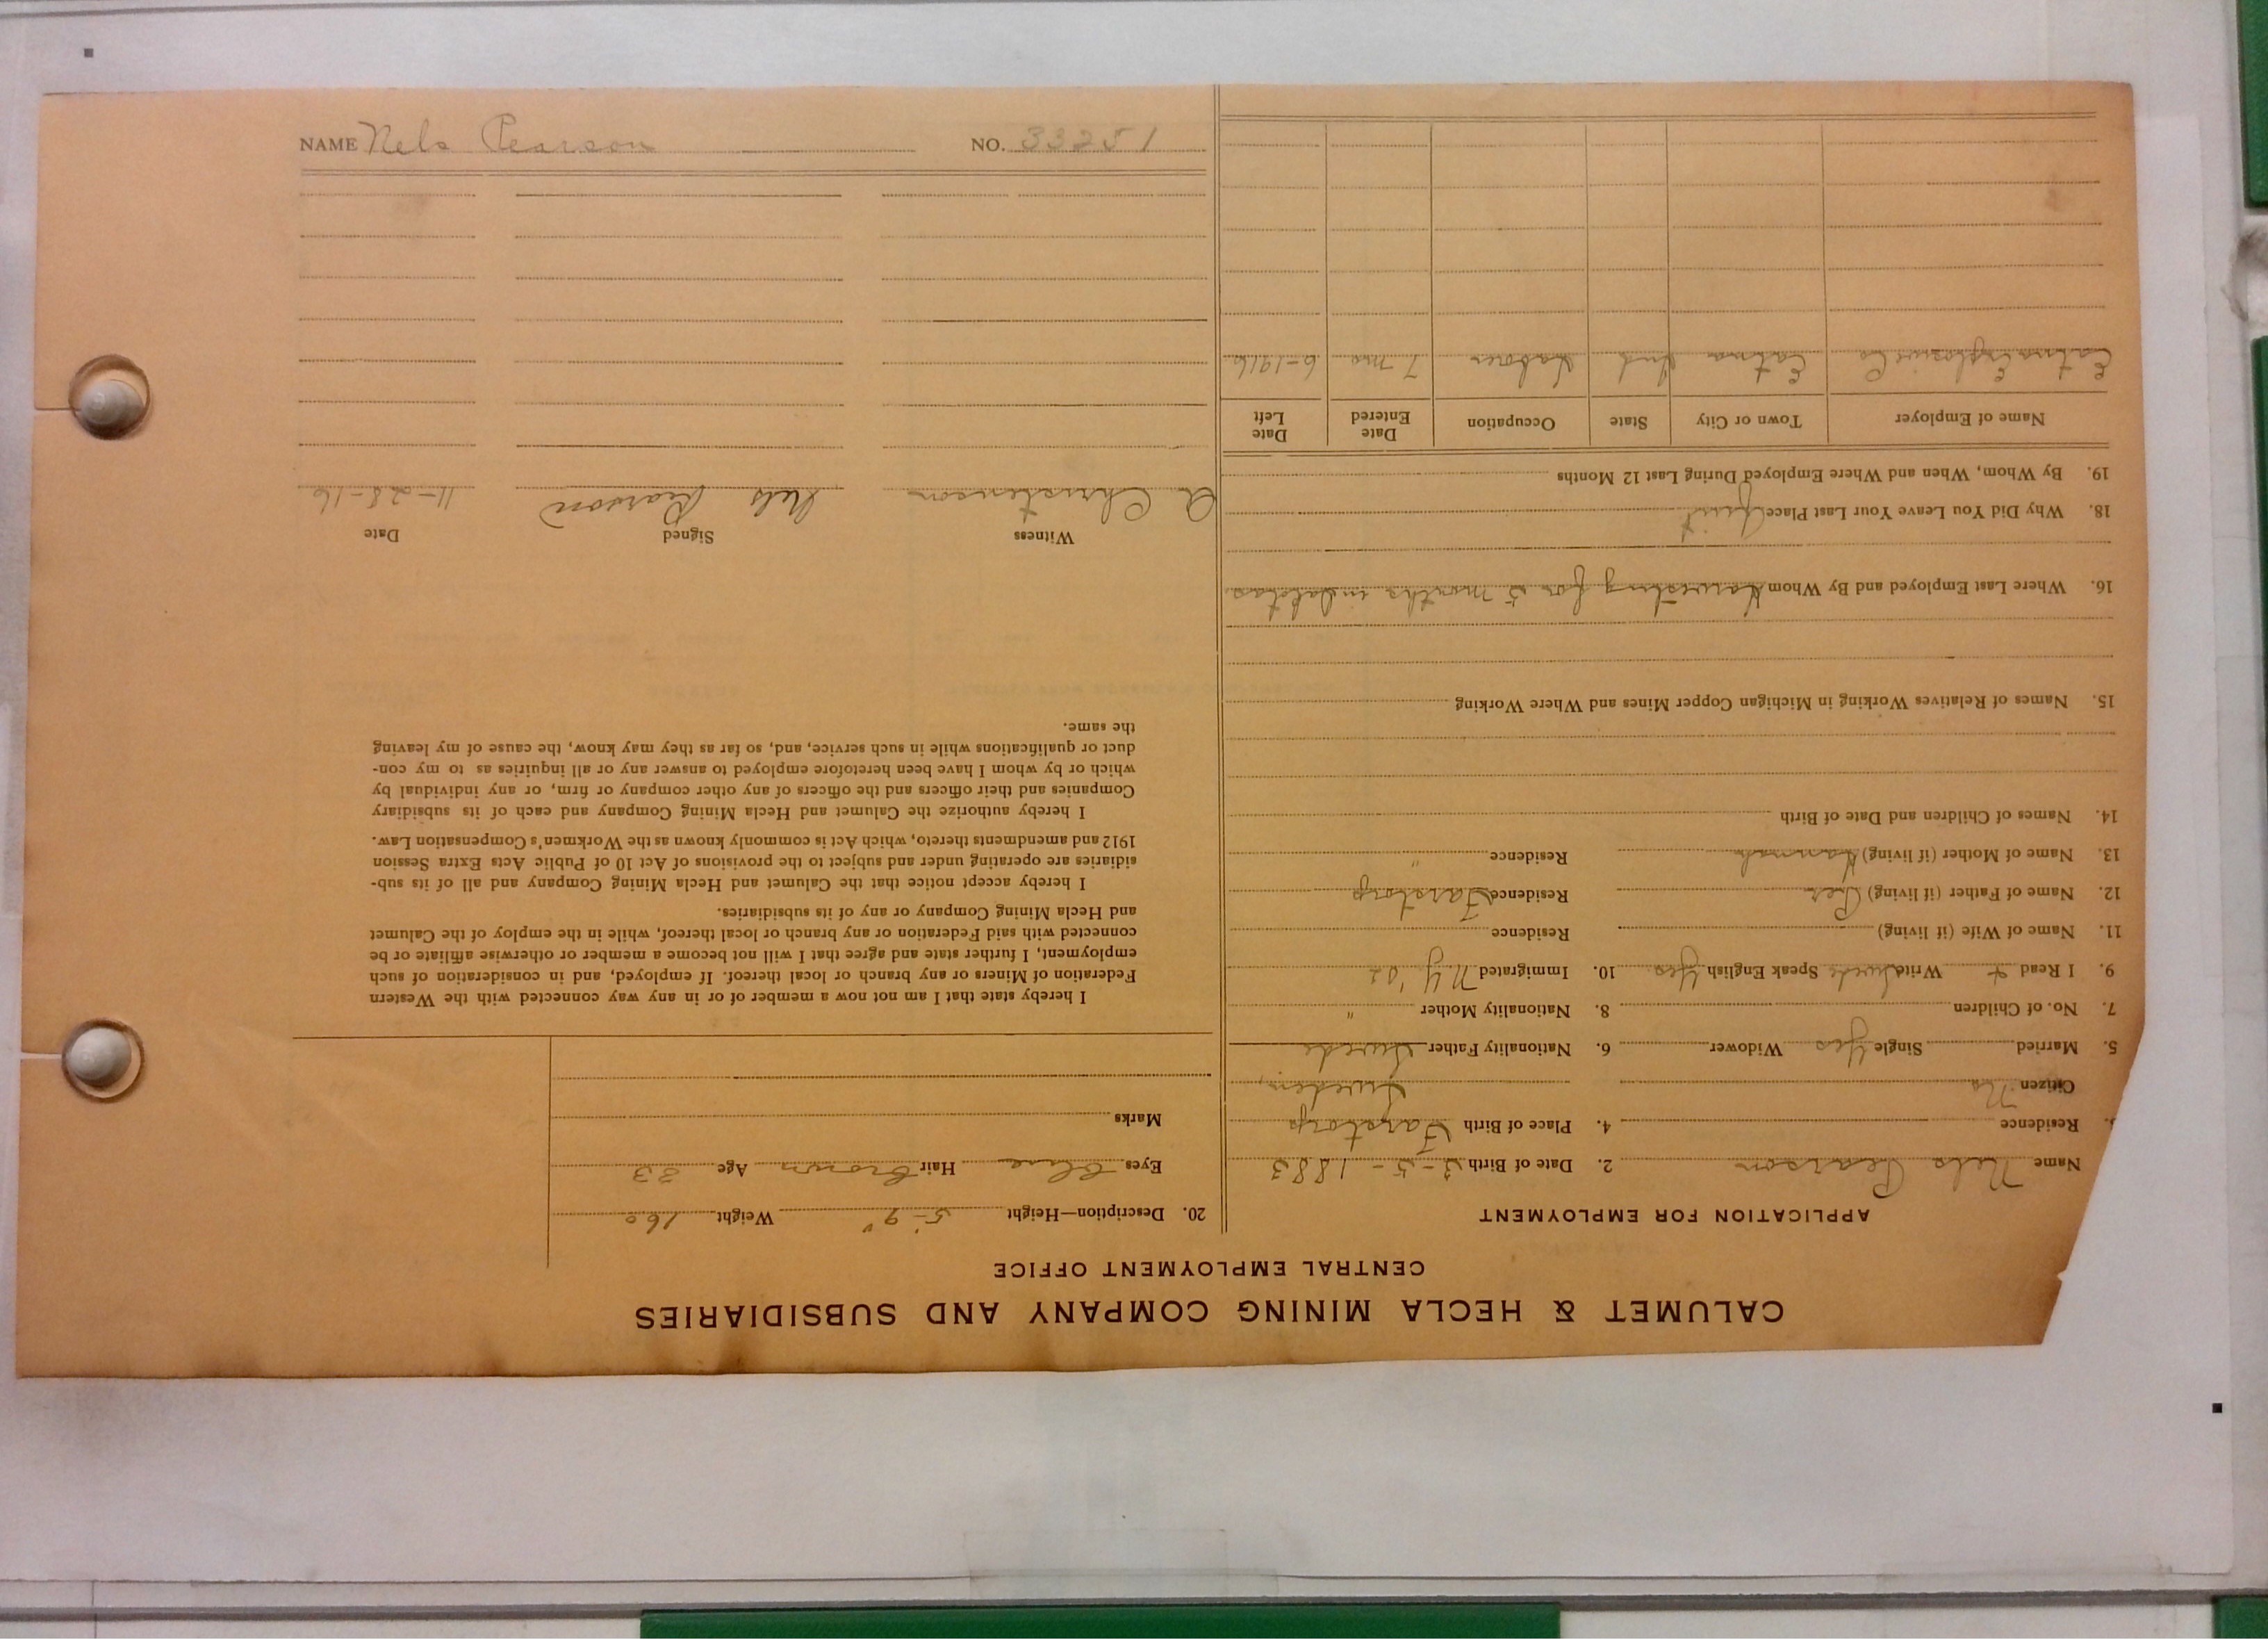 CALUMET & HECLA MINING COMPANY AND SUBSIDIARIES
CENTRAL EMPLOYMENT OFFICE
APPLICATION FOR EMPLOYMENT
Name Nels Pearson 2. Date of Birth 3-5-1883
Residence 4. Place of Birth Farstorp
Citizen No Sweden
5. Married Single Yes Widower 6. Nationality Father Swede
7. No. of Children 8. Nationality Mother "
9. I Read & Write Swede Speak English Yes 10. Immigrated N.Y. '02
11. Name of Wife (if living) Residence
12. Name of Father (if living) Per Residence Farstorp
13. Name of Mother (if living) Hannah Residence "
14. Names of Children and Date of Birth
15. Names of Relatives Working in Michigan Copper Mines and Where Working
16. Where Last Employed and By Whom Harvesting for 5 months in Dakotas.
18. Why Did You Leave Your Last Place Quit
19. By Whom, When and Where Employed During Last 12 Months
Name of Employer Town or City State Occupation Date Entered Date Left
Explosive Co Labour 7 mo 6-1916
20. Description—Height 5'-9" Weight 160
Eyes Blue Hair Brown Age 33
Marks
I hereby state that I am not now a member of or in any way connected with the Western
Federation of Miners or any branch or local thereof. If employed, and in consideration of such
employment, I further state and agree that I will not become a member or otherwise affiliate or be
connected with said Federation or any branch or local thereof, while in the employ of the Calumet
and Hecla Mining Company or any of its subsidiaries.
I hereby accept notice that the Calumet and Hecla Mining Company and all of its sub-
sidiaries are operating under and subject to the provisions of Act 10 of Public Acts Extra Session
1912 and amendments thereto, which Act is commonly known as the Workmen's Compensation Law.
I hereby authorize the Calumet and Hecla Mining Company and each of its subsidiary
Companies and their officers and the officers of any other company or firm, or any individual by
which or by whom I have been heretofore employed to answer any or all inquiries as to my con-
duct or qualifications while in such service, and, so far as they may know, the cause of my leaving
the same.
Witness Signed Date
A Christenson Nels Pearson 11-28-16
NAME Nels Pearson NO. 33251